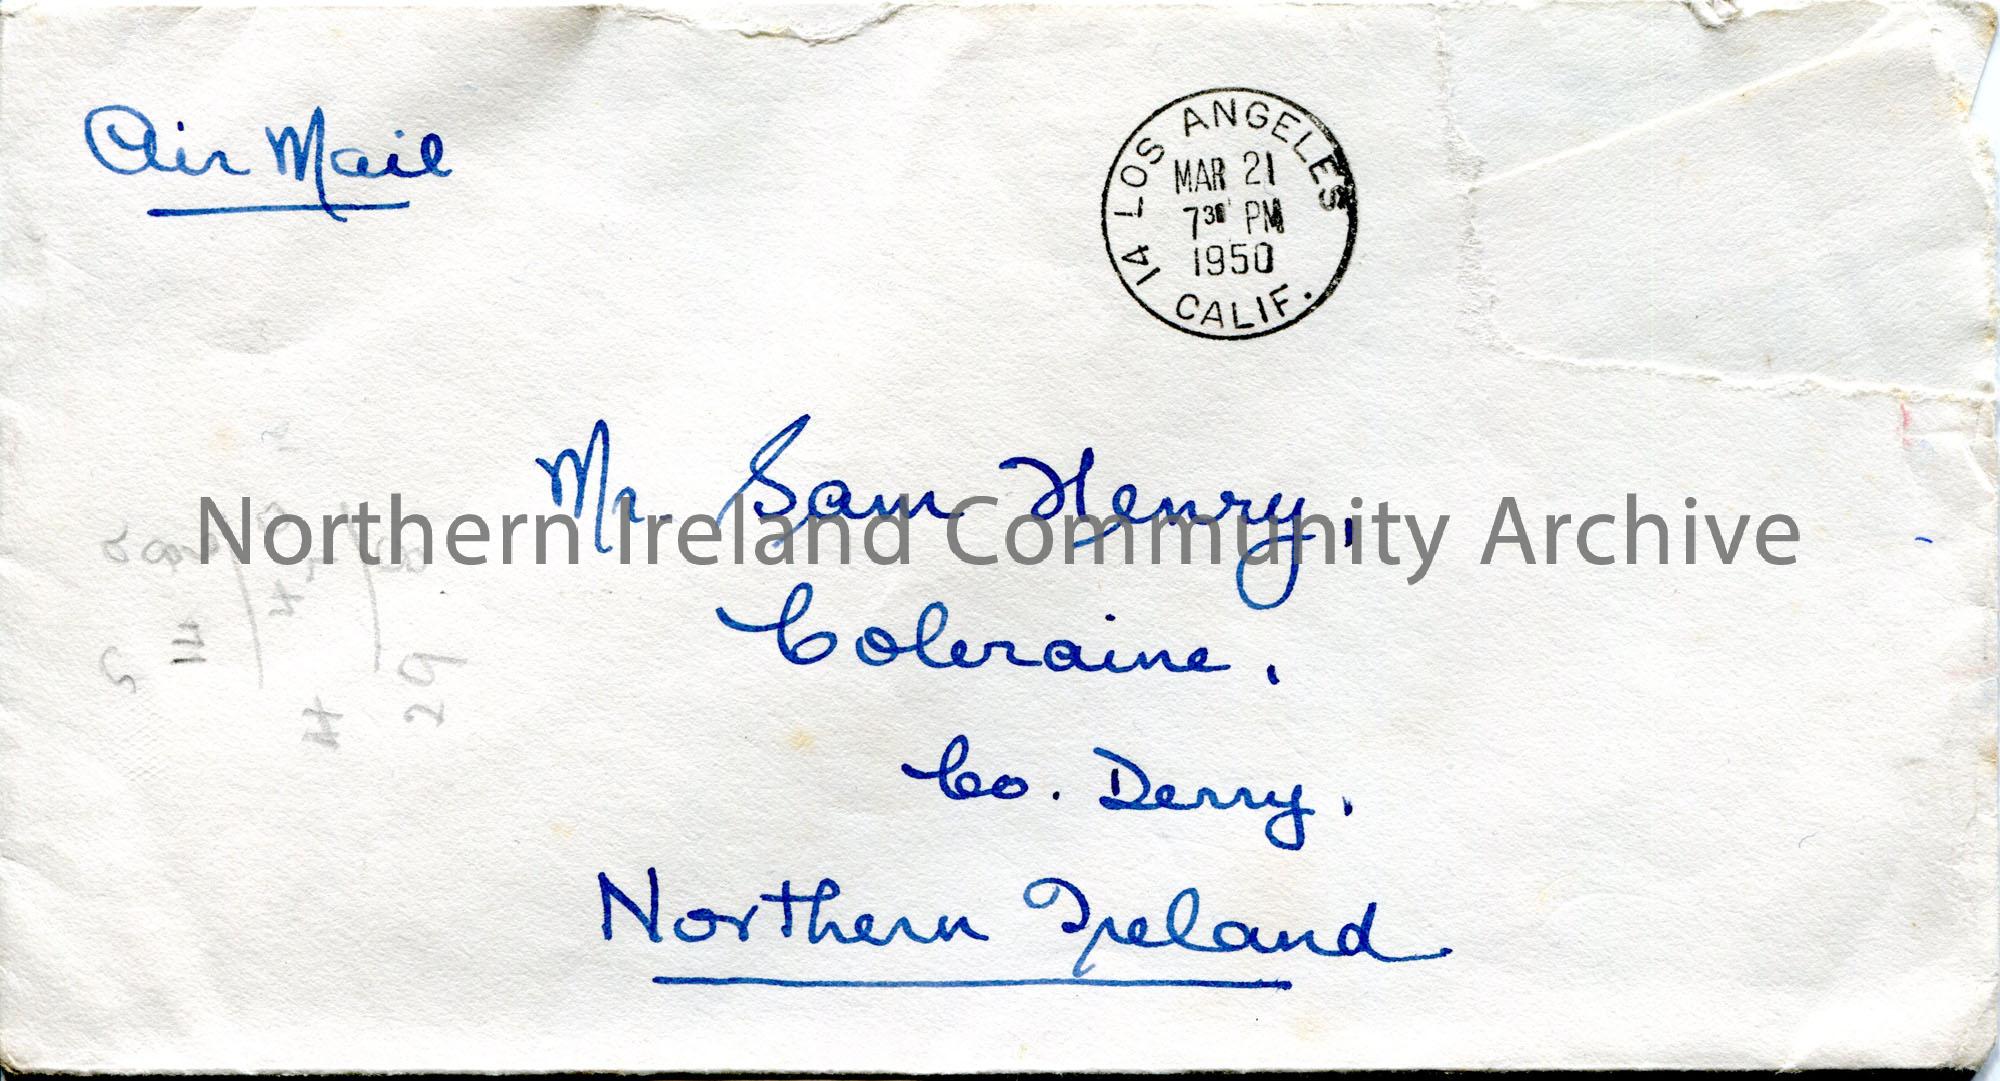 Air Mail
14 LOS ANGELES
MAR 21
7 30 PM
1950
CALIF.
Mr. Sam Henry,
Northern Ireland Community Archive
Coleraine.
Co. Derry.
Northern Ireland
29